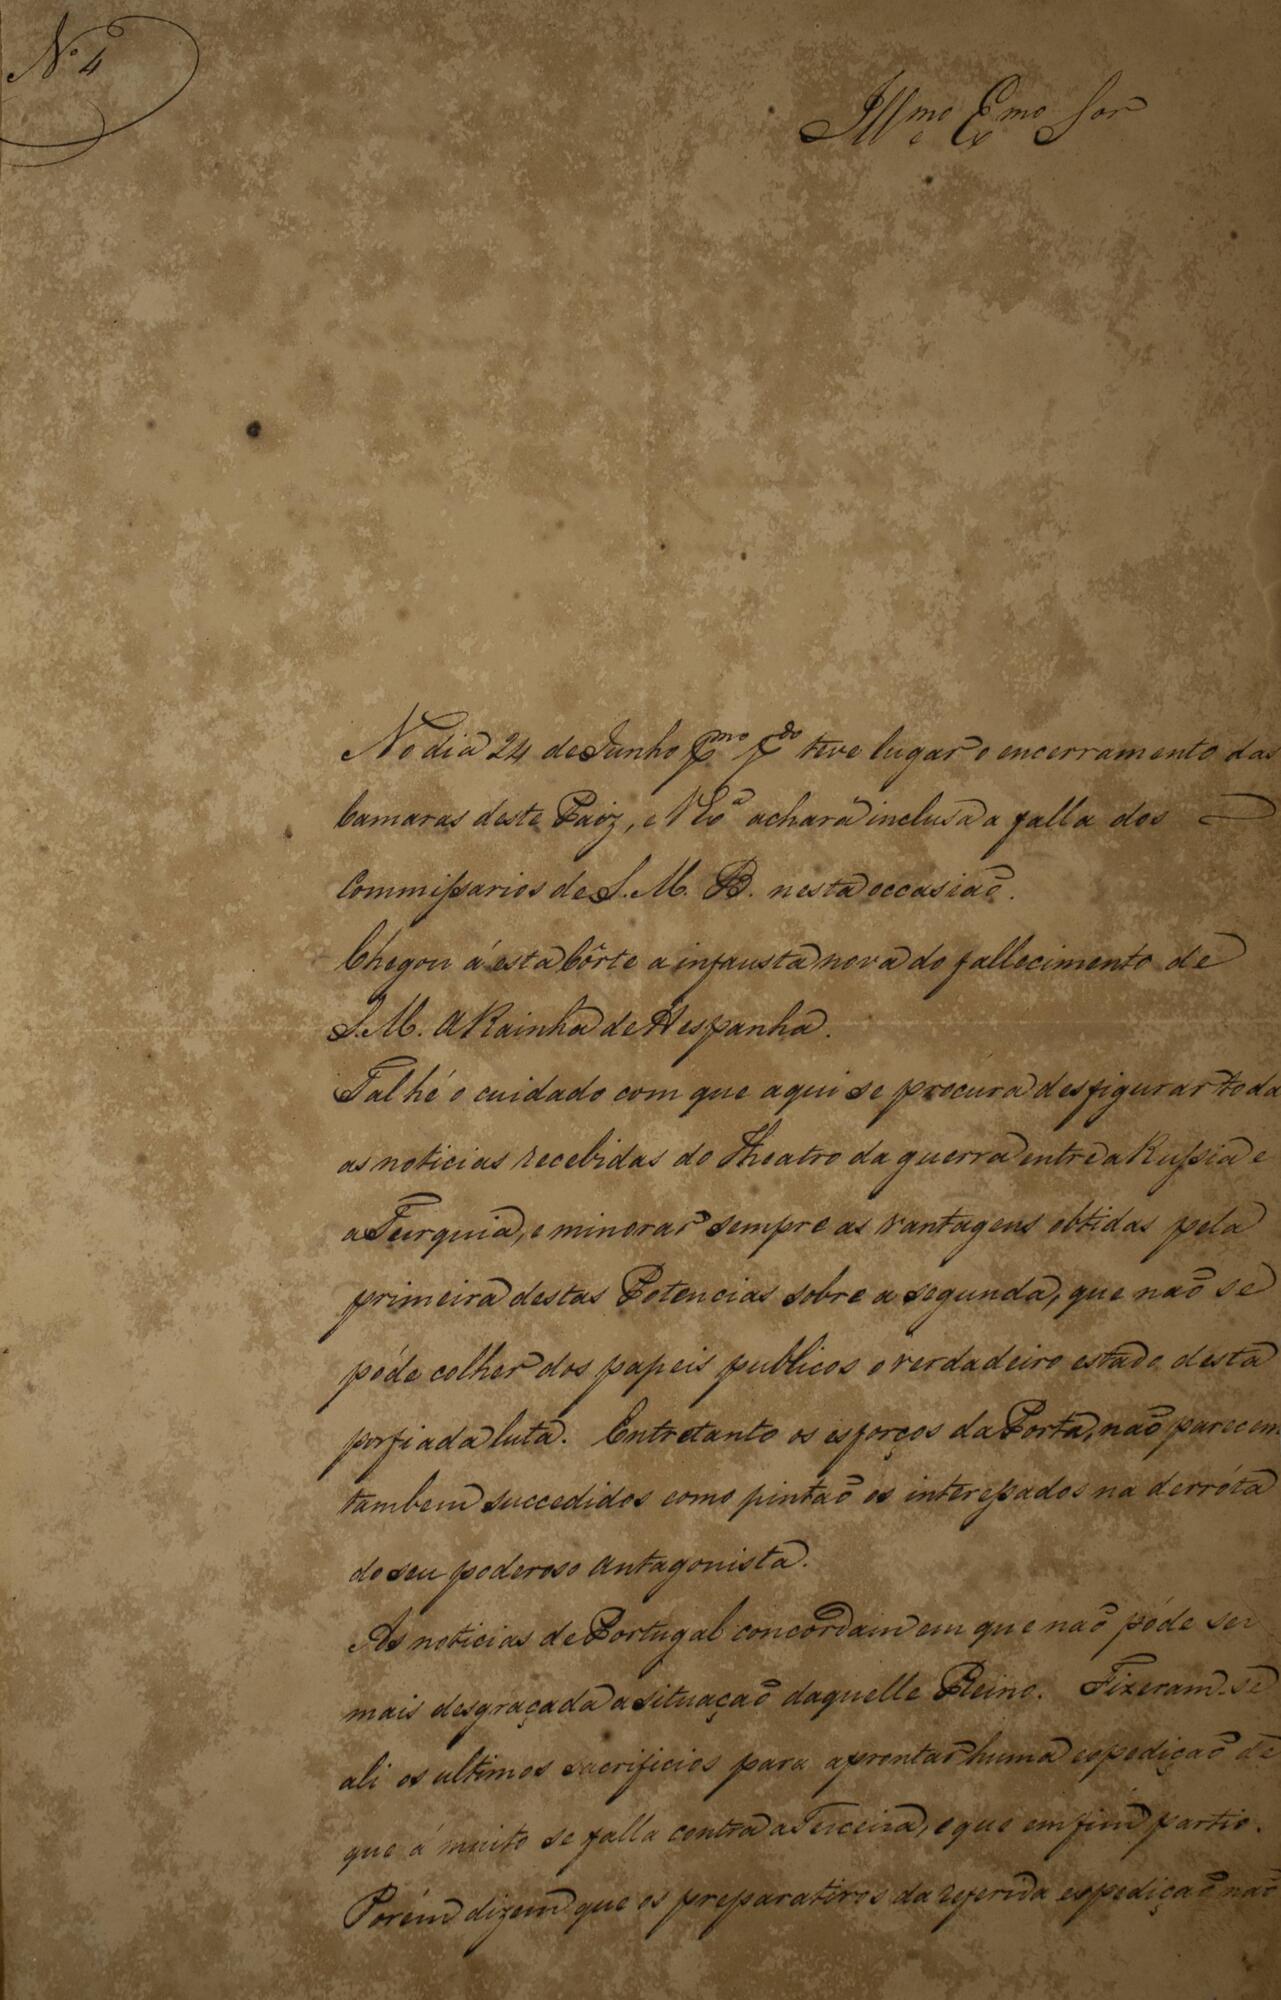 Nº 4
Illmo e Exmo Sor
No dia 24 de Junho pmo pdo teve lugar o encerramento das
Camaras deste Paiz, e V Exª achará inclusa a falla dos
Commissarios de S. M. B. nesta occasiaõ.
Chegou á esta Côrte a infausta nova do fallecimento de
S. M. A Rainha de Hespanha.
Tal hé o cuidado com que aqui se procura desfigurar toda
as noticias recebidas do Theatro da guerra entre a Russia e
a Turquia, e minorar sempre as vantagens obtidas pela
primeira destas Potencias sobre a segunda, que naõ se
póde colher dos papeis publicos o verdadeiro estado desta
porfiada luta. Entretanto os esforços da Porta, naõ parecem
tambem succedidos como pintaõ os interessados na derróta
do seu poderoso antagonista.
As noticias de Portugal concordam em que naõ póde ser
mais desgraçada a situaçaõ daquelle Reino. Fizeram-se
ali os ultimos sacrificios para aprontar huma espediçaõ de
que á muito se falla contra a Terceira, e que em fim partio.
Porém dizem que os preparativos da referida espediçaõ naõ